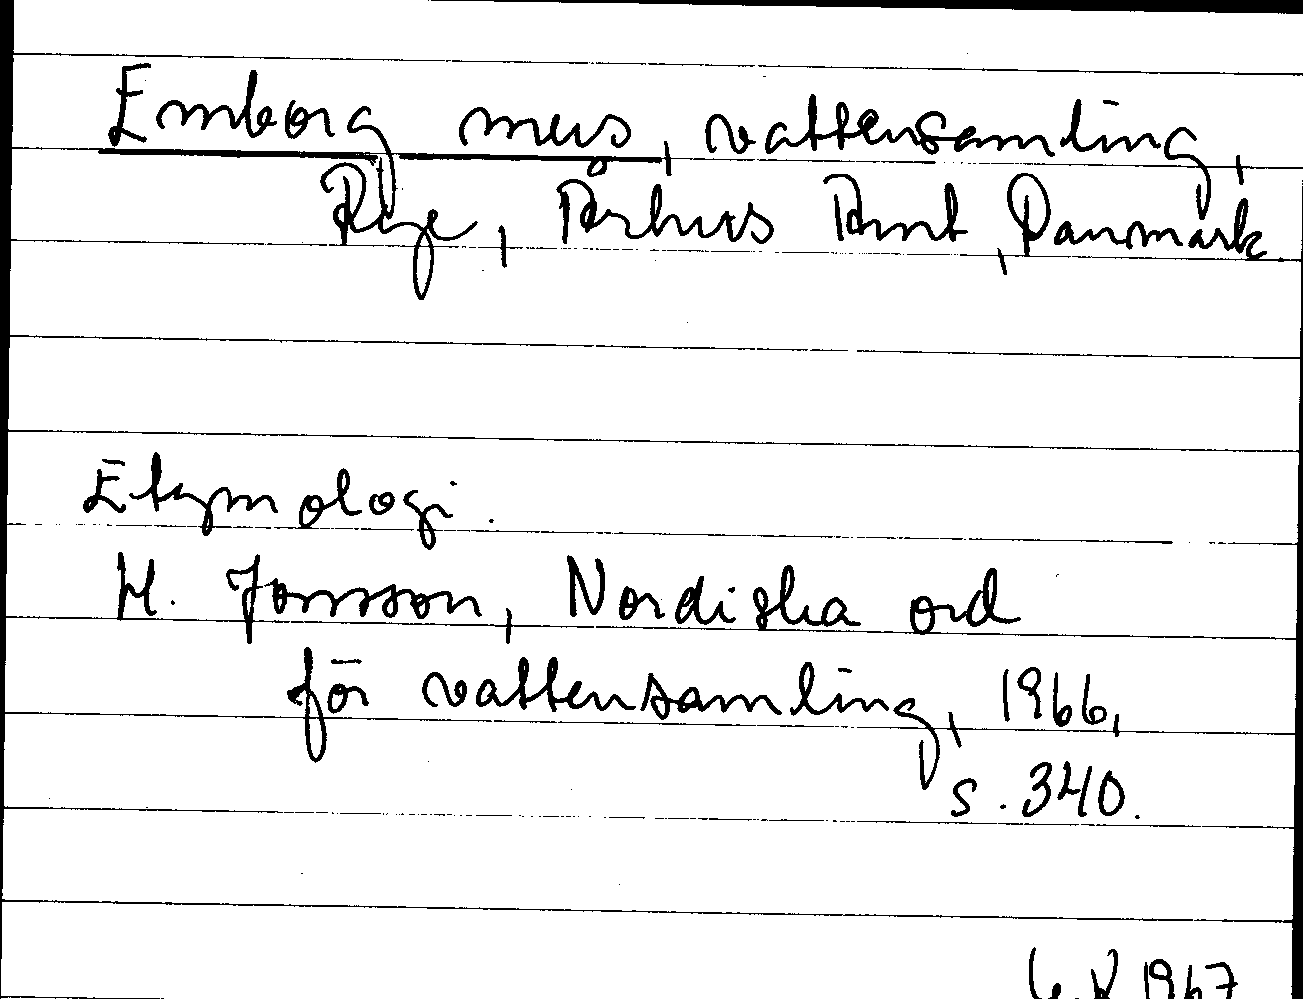 Emborg mus, vattensamling,
Rye, Århus Amt, Danmark.
Etymologi.
H. Jonsson, Nordiska ord
för vattensamling, 1966,
s. 340.
1967